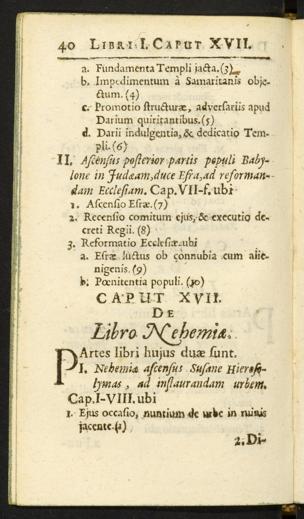 40 LIBRI I. CAPUT XVII.
a. Fundamenta Templi jacta.(3)
b. Impedimentum à Samaritanis obje-
ctum.(4)
c. Promotio structuræ, adversariis apud
Darium quiritantibus.(5)
d. Darii indulgentia, & dedicatio Tem-
pli.(6)
II. Ascensus posterior partis populi Baby-
lone in Judeam, duce Esra, ad reforman-
dam Ecclesiam. Cap. VII-f. ubi
1. Ascensio Esræ.(7)
2. Recensio comitum ejus, & executio de-
creti Regii. (8)
3. Reformatio Ecclesiæ.ubi
a. Esræ luctus ob connubia cum alie-
nigenis.(9)
b. Pœnitentia populi. (10)
CAPUT XVII.
DE
Libro Nehemiæ.
PArtes libri hujus duæ sunt.
I. Nehemiæ ascensus Susane Hieroso-
lymas, ad instaurandam urbem.
Cap. I-VIII. ubi
1. Ejus occasio, nuntium de urbe in ruinis
jacente.(1)
2. Di-